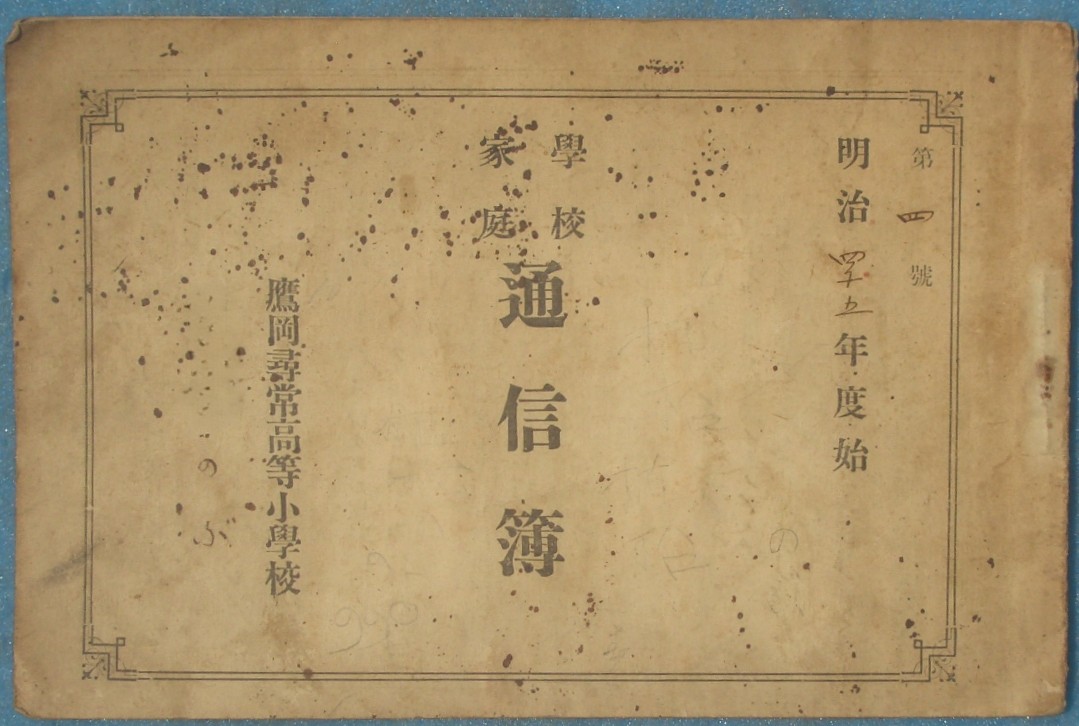 第四號
明治四十五年度始
學校
家庭
通信簿
鷹岡尋常高等小學校
のぶ